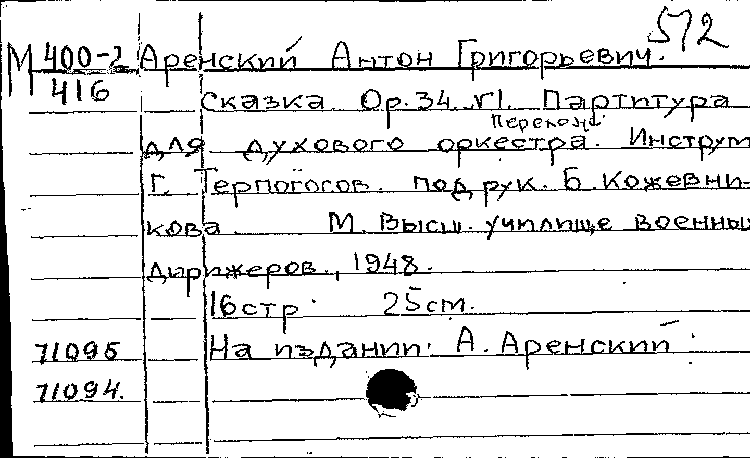 572
М 400-2 Аренский Антон Григорьевич.
416
Сказка. Op. 34 №1. Партитура
Перелож.
для духового оркестра. Инструм
Г. Терпогосов. под рук. Б. Кожевни-
кова. М. Высш. училище военных
дирижеров, 1948.
16 стр. 25 см.
71095 На издании: А. Аренский.
71094.